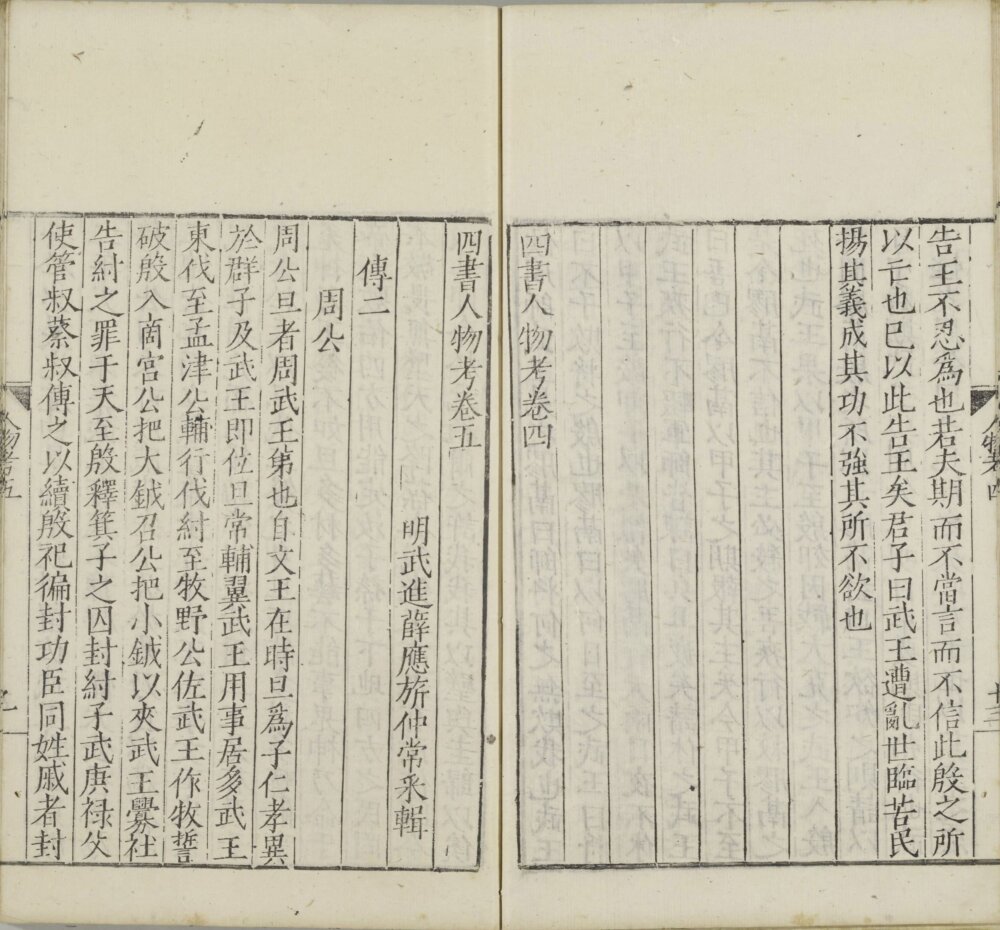 告王不忍爲也若夫期而不當言而不信此殷之所
以亡也已以此告王矣君子曰武王遭亂世臨苦民
揚其義成其功不強其所不欲也
四書人物考卷四
四書人物考卷五
明武進薛應旂仲常采輯
傳二
周公
周公旦者周武王第也自文王在時旦爲子仁孝異
於群子及武王即位旦常輔翼武王用事居多武王
東伐至孟津公輔行伐紂至牧野公佐武王作牧誓
破殷入商宮公把大鉞召公把小鉞以夾武王釁社
告紂之罪于天至殷釋箕子之囚封紂子武庚禄父
使管叔蔡叔傳之以續殷祀徧封功臣同姓戚者封